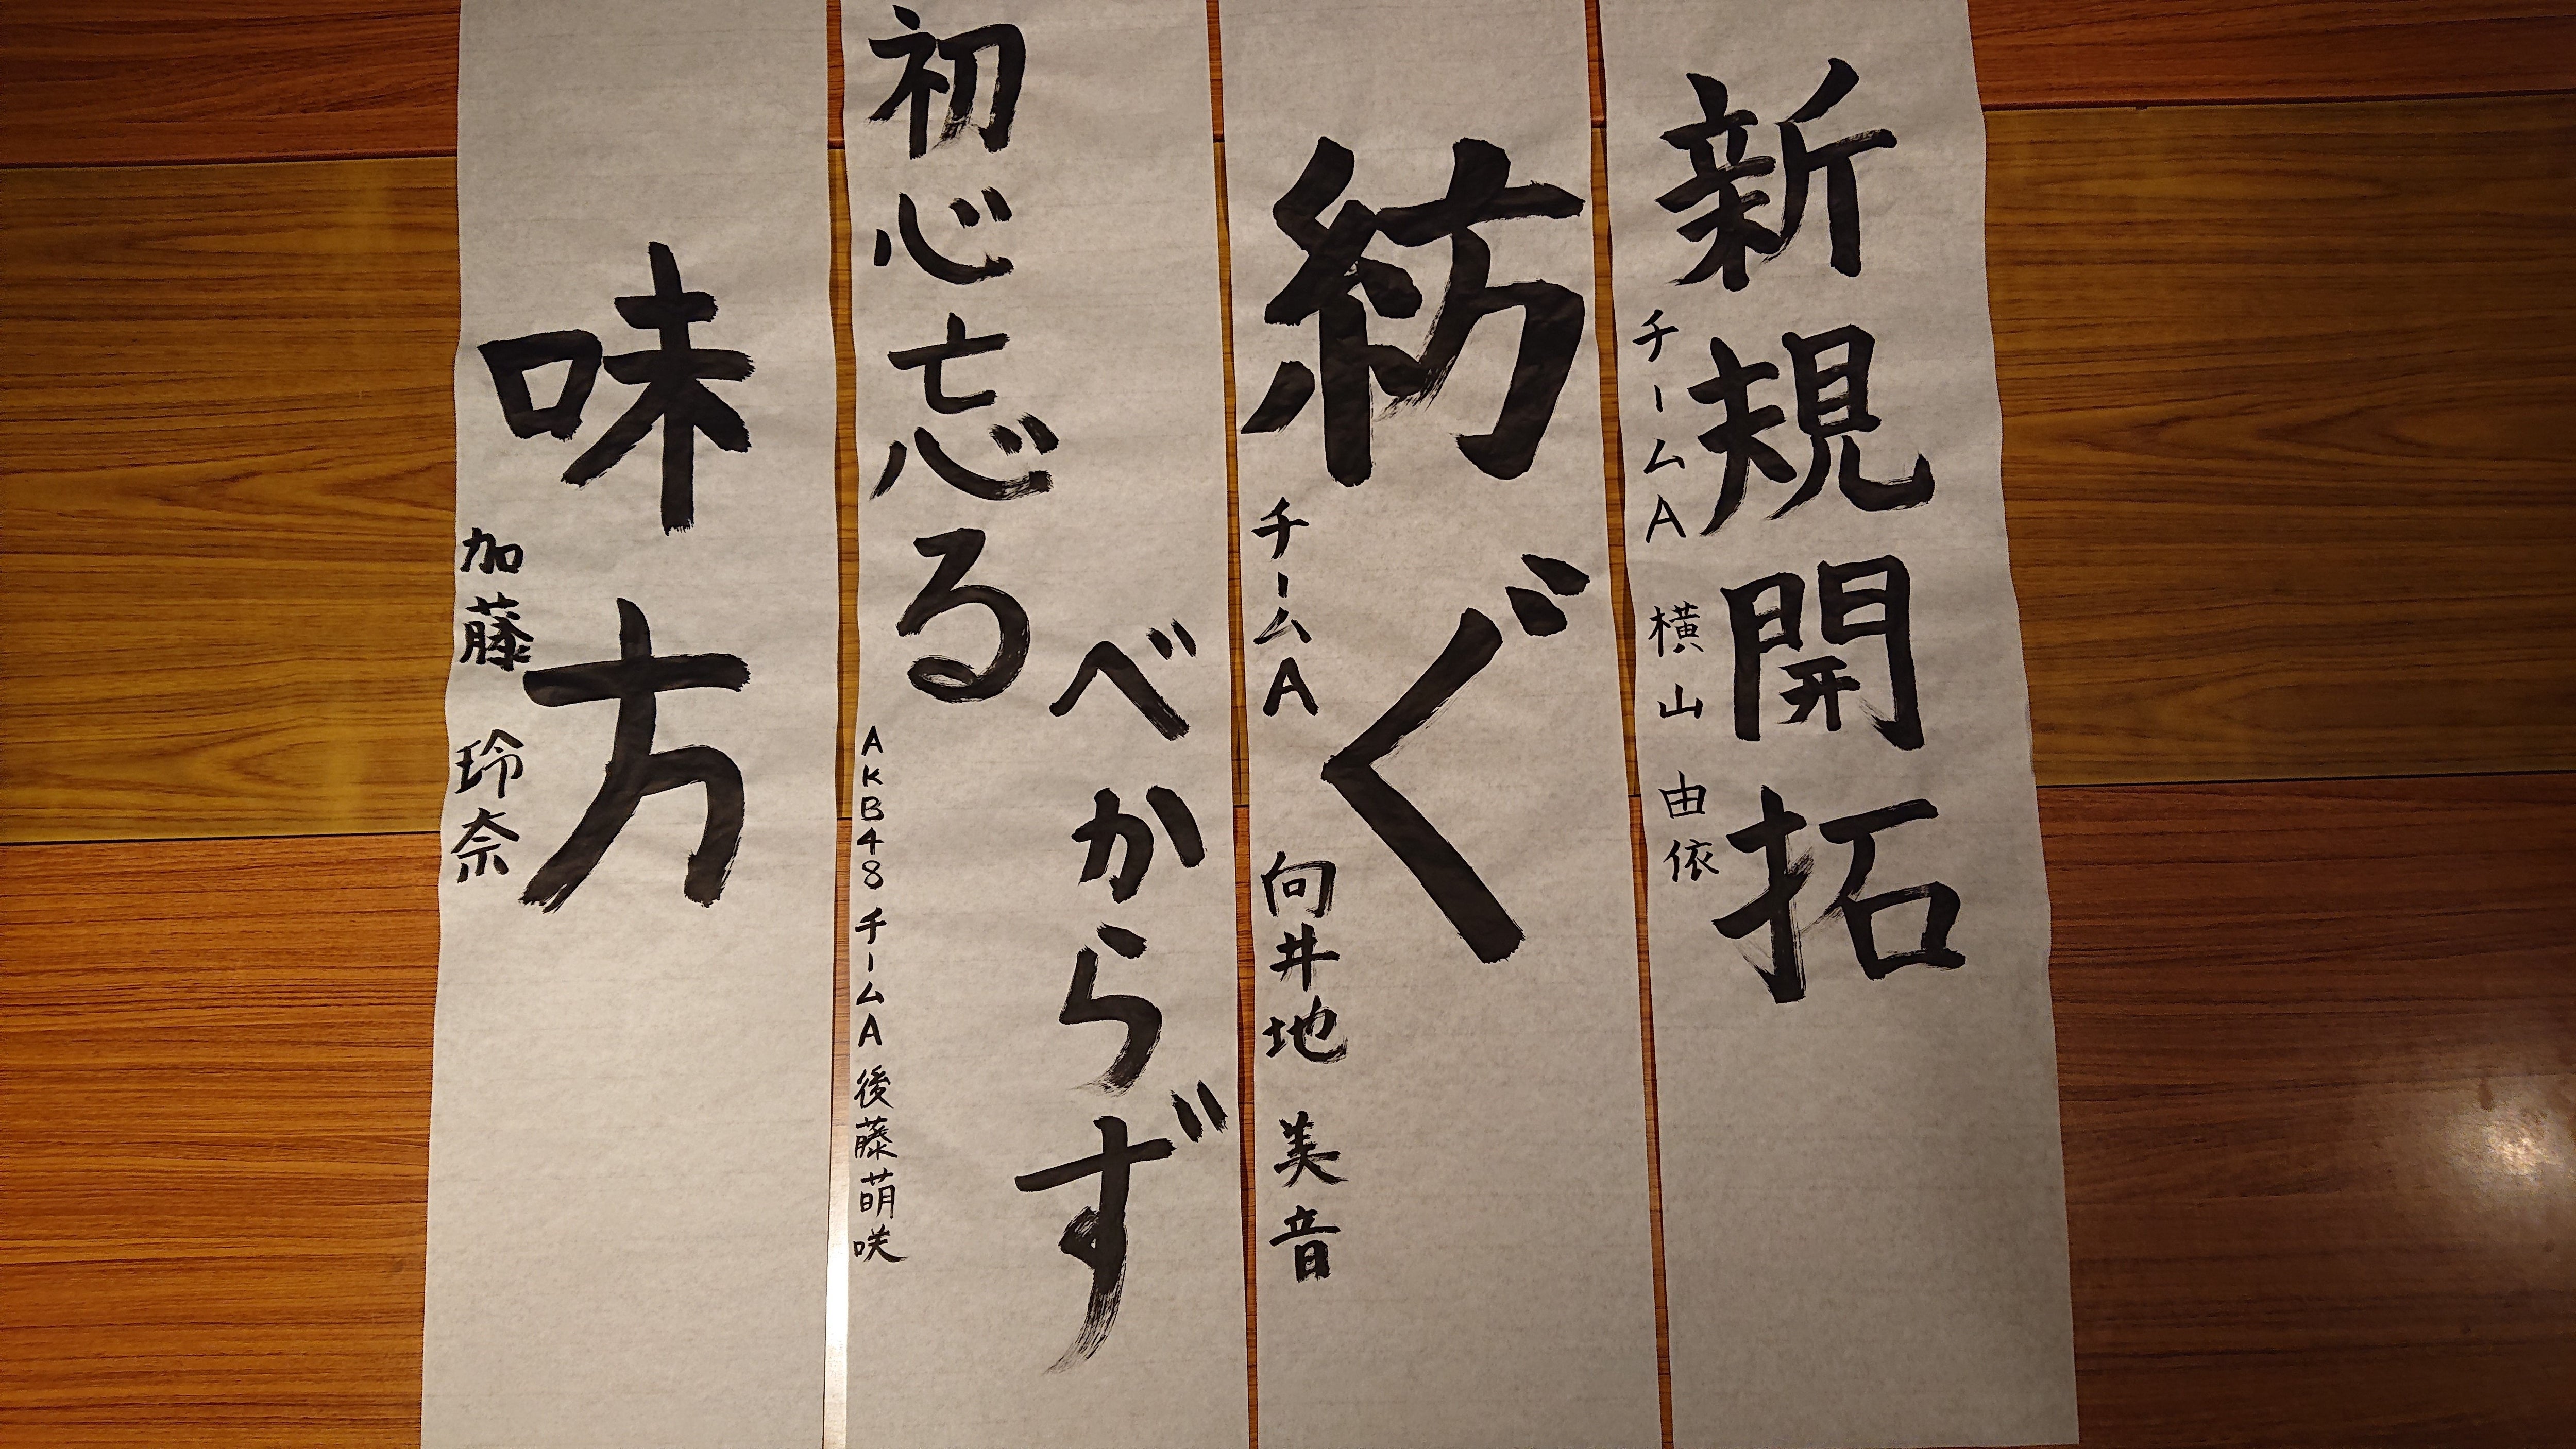 新規開拓
チームA 横山 由依
紡ぐ
チームA 向井地 美音
初心忘る
べからず
AKB48 チームA 後藤萌咲
味方
加藤 玲奈